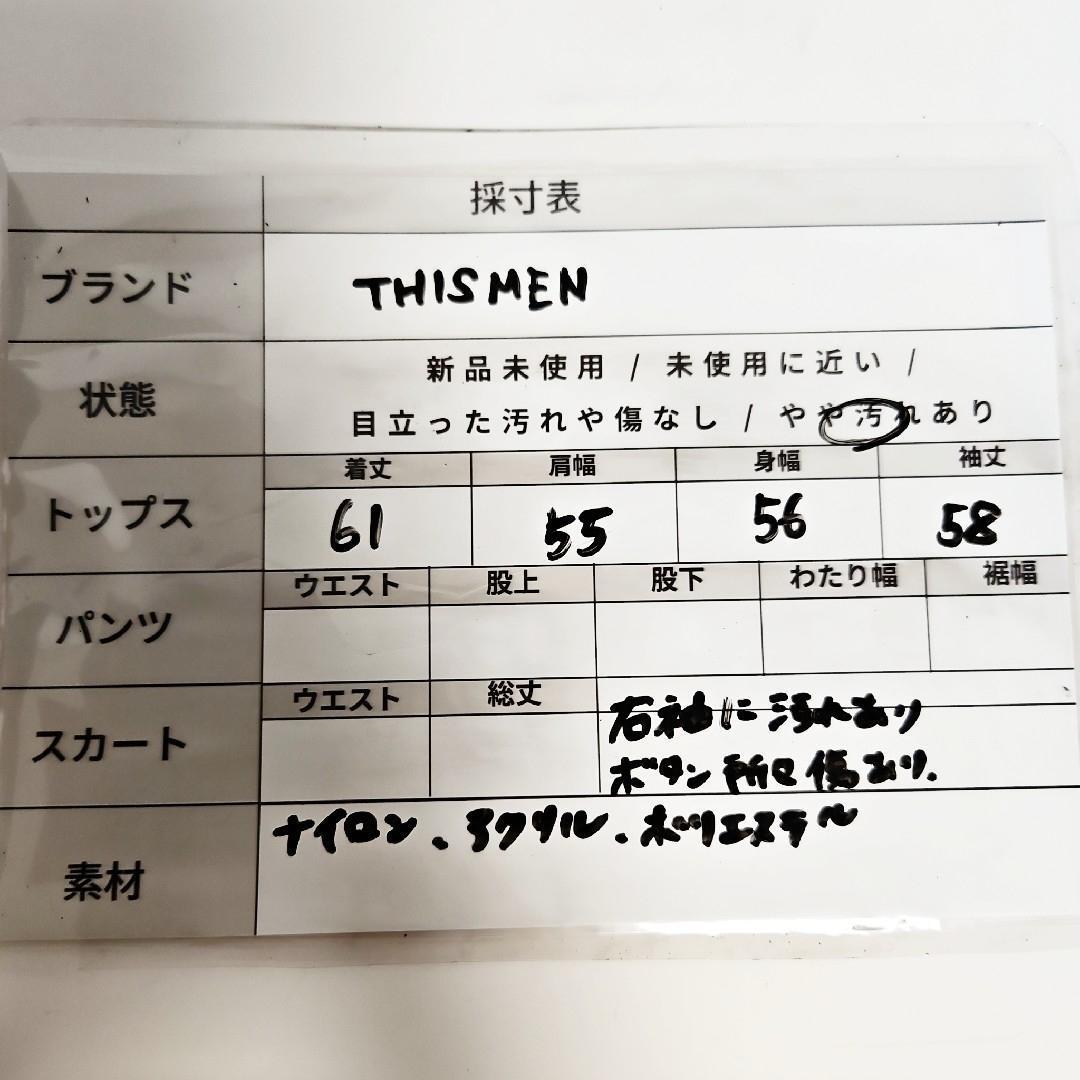 採寸表
ブランド THISMEN
状態 新品未使用 / 未使用に近い /
目立った汚れや傷なし / やや汚れあり
着丈 肩幅 身幅 袖丈
トップス 61 55 56 58
ウエスト 股上 股下 わたり幅 裾幅
パンツ
ウエスト 総丈 右袖に汚れあり
スカート ボタン所々傷あり.
ナイロン、アクリル、ポリエステル
素材